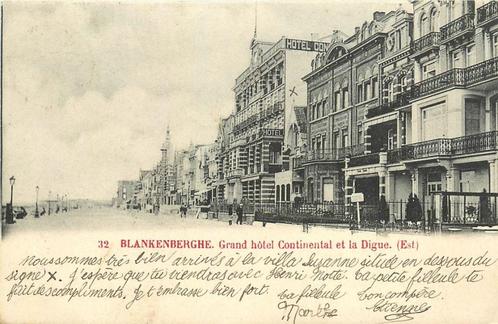 HOTEL CO
HOTEL
32 BLANKENBERGHE. Grand hôtel Continental et la Digue. (Est)
nous sommes très bien arrivés à la villa Suzanne située en dessous du
signe X. j'espère que tu viendras avec Henri Notte. Ta petite filleule te
fait des compliments. Je t'embrasse bien fort. Ta filleule ton compère.
Marthe Etienne